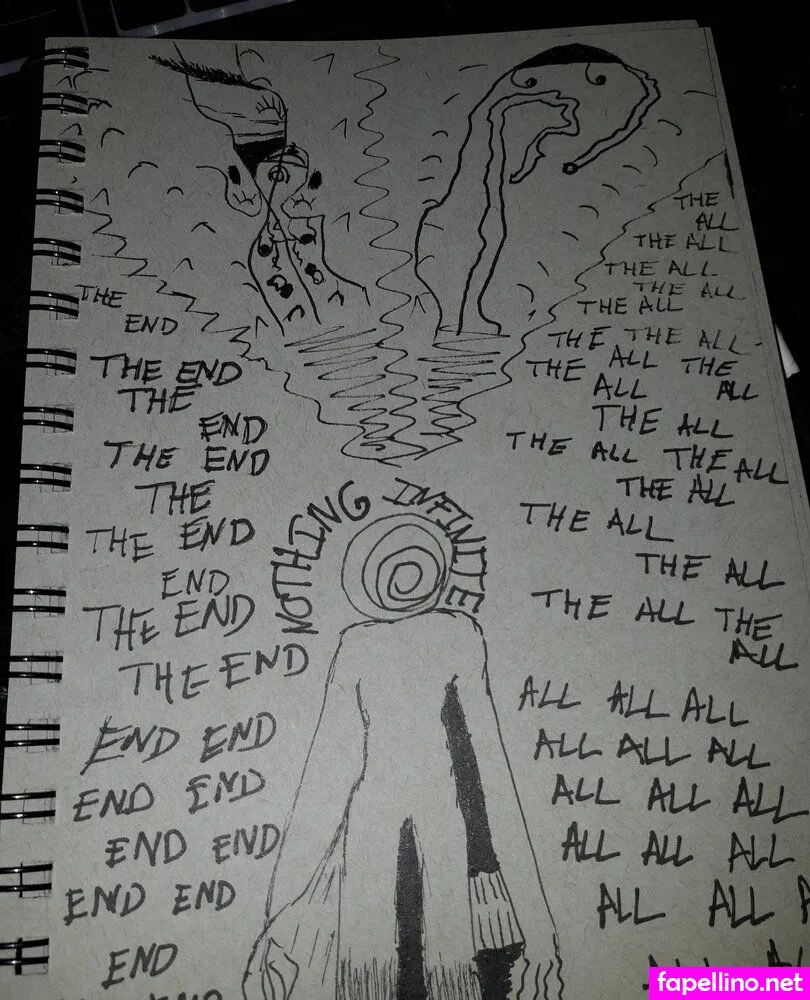 THE
END
THE END
THE
END
THE END
THE
THE END
END
THE END
THE END
END END
END END
END END
END END
END
END
NOTHING INFINITE
THE
ALL
THE ALL
THE ALL
THE ALL
THE ALL
THE THE ALL
THE ALL THE
ALL ALL
THE ALL
THE ALL THE ALL
THE ALL
THE ALL
THE ALL
THE ALL THE
ALL
ALL ALL ALL
ALL ALL ALL
ALL ALL ALL
ALL ALL ALL
ALL ALL
fapellino.net